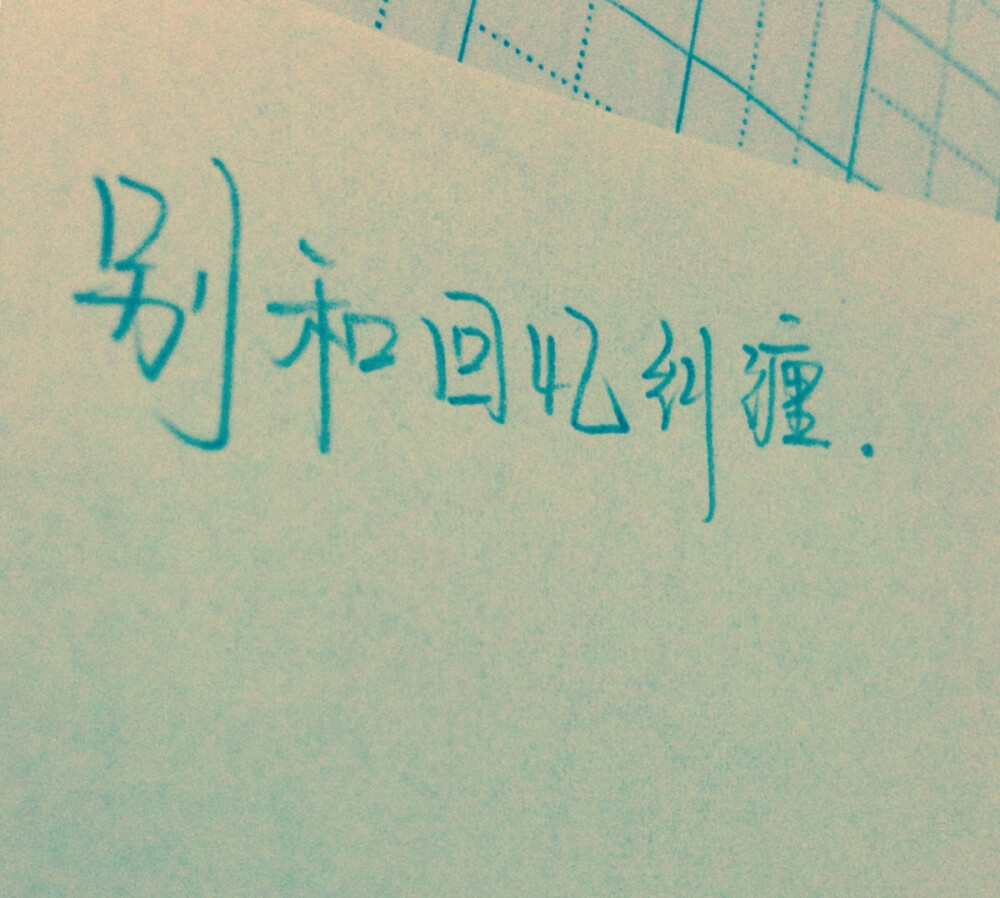 别和回忆纠缠.